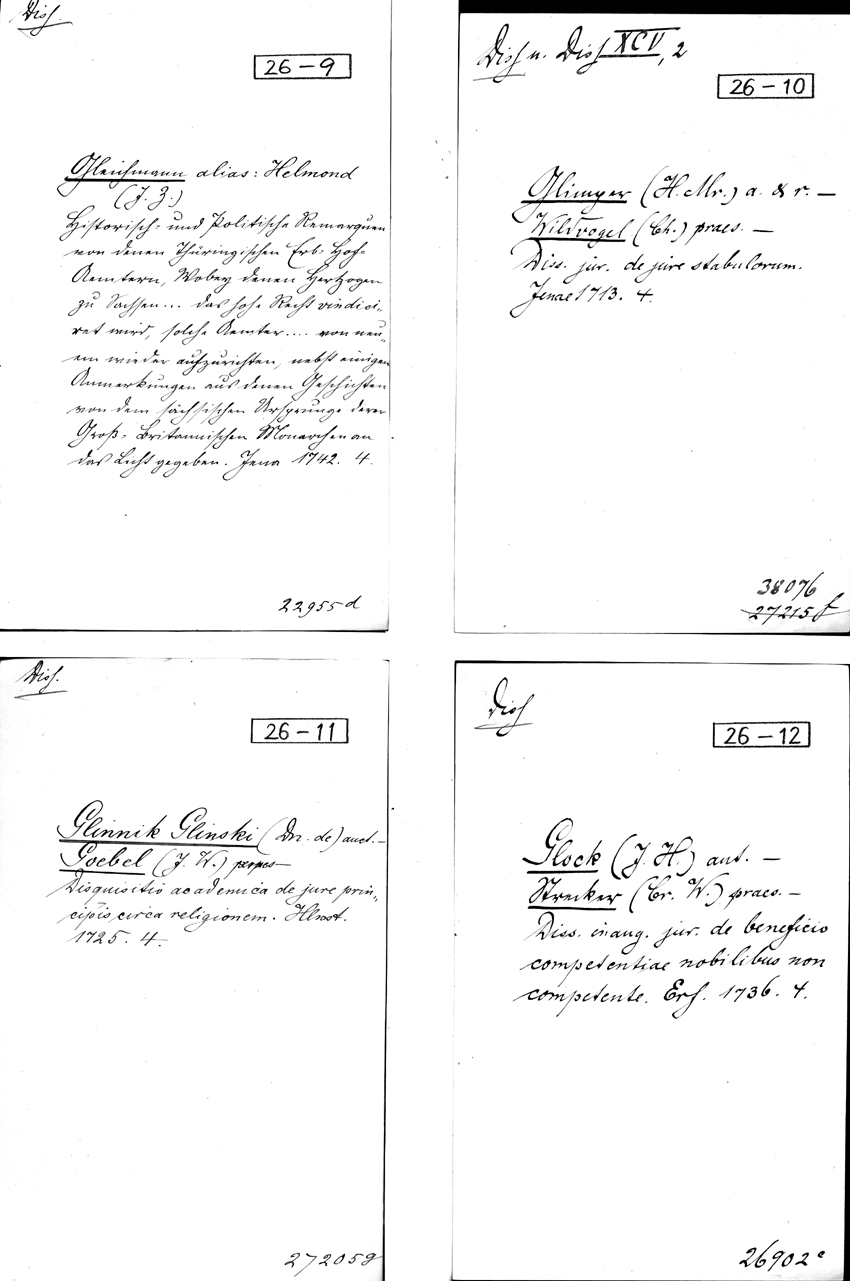 Diss.
26-9
Gleichmann alias: Helmond
(J. Z.)
Historisch- und Politische Remarquen
von denen Thüringischen Erb-Hof-
Aemtern, Wobey denen Hertzogen
zu Sachsen... das hohe Recht vindici-
ret wird, solche Aemter.... von neu-
em wieder aufzurichten, nebst einigen
Anmerkungen aus denen Geschichten
von dem sächsischen Ursprunge derer
Groß-Britannischen Monarchen an
das Licht gegeben. Jena 1742. 4.
22955 d
Diss u. Diss XCV, 2
26-10
Glimper (H. Mr.) a. & r. —
Wildvogel (Ch.) praes. —
Diss. jur. de jure stabulorum.
Jenae 1713. 4.
38076
27215 f
Diss.
26-11
Glinnik Glinski (Dn. de) auct. —
Goebel (J. W.)
Disquisitio academica de jure prin-
cipis circa religionem. Hlmst.
1725. 4.
27205 g
Diss
26-12
Glock (J. H.) aut. —
Strecker (Cr. W.) praes. —
Diss. inaug. jur. de beneficio
competentiae nobilibus non
competente. Erf. 1736. 4.
26902 e